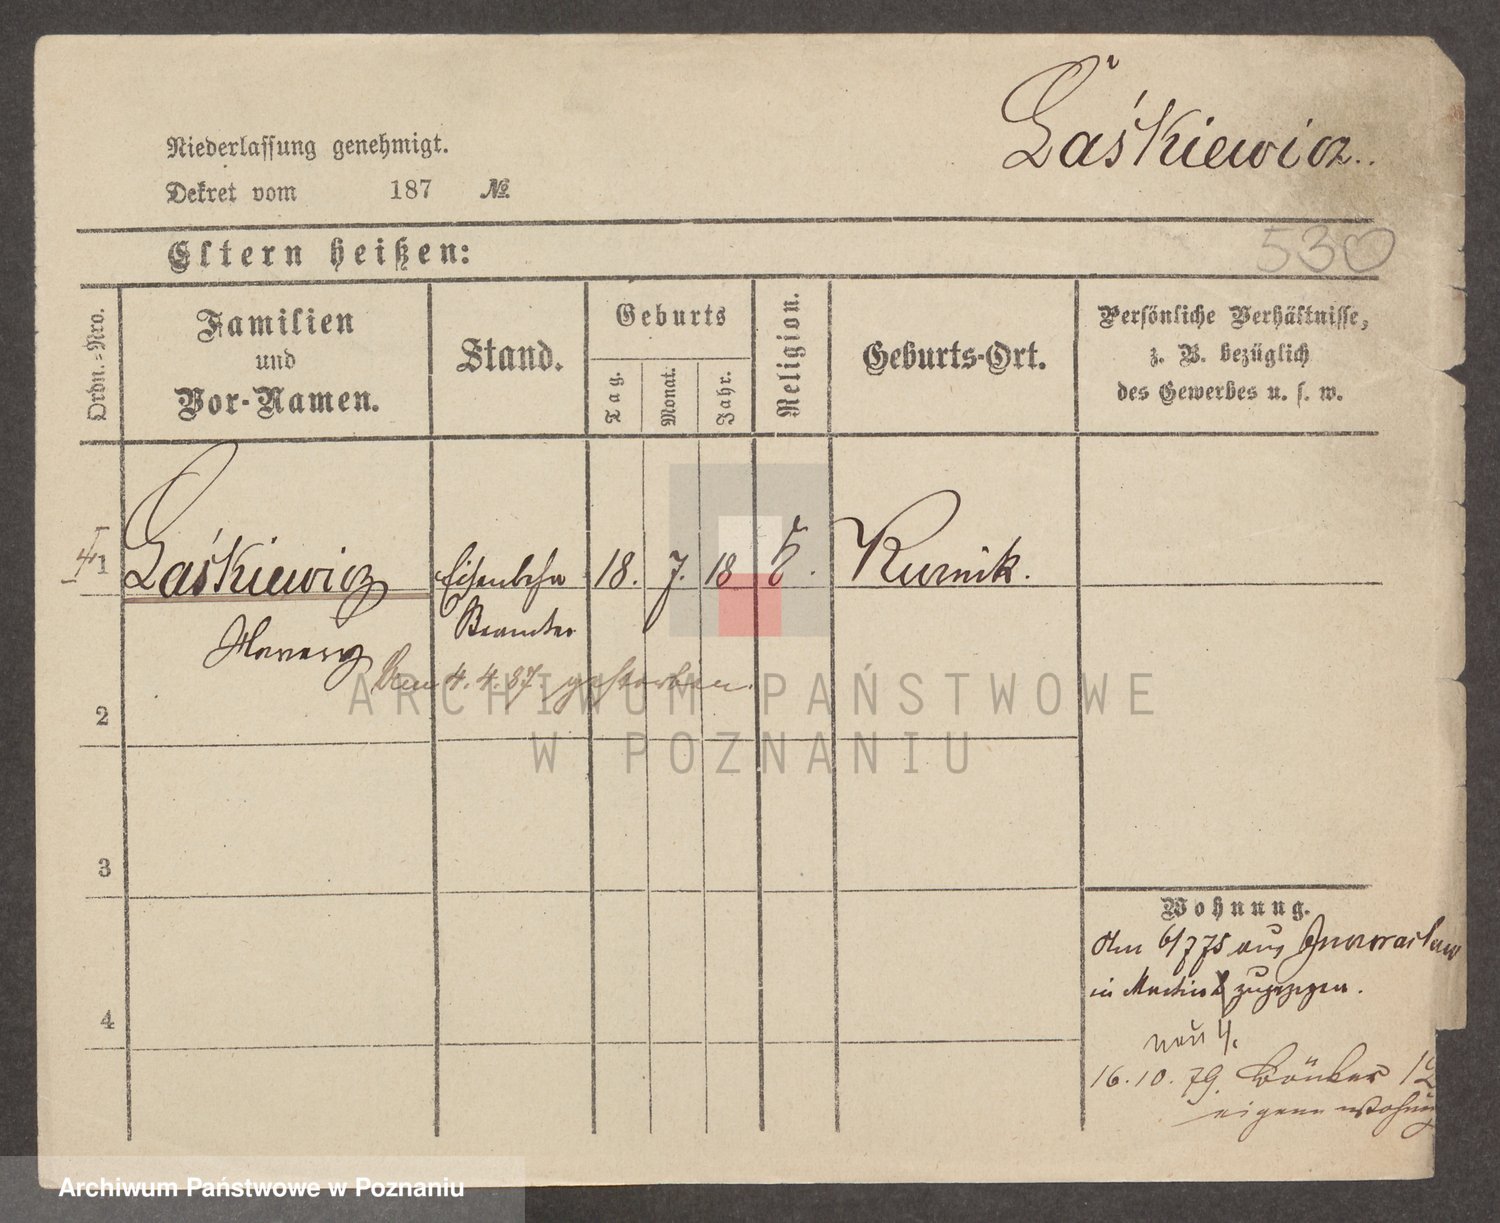 Laśkiewicz..
Niederlassung genehmigt.
Dekret vom 187 №
Eltern heißen:
530
Ordn.-Nro.
Familien
und
Vor-Namen.
Stand.
Geburts
Tag.
Monat.
Jahr.
Religion.
Geburts-Ort.
Persönliche Verhältnisse,
z. B. bezüglich
des Gewerbes u. s. w.
1 Laśkiewicz Eisenbahn 18. 7. 18 k. Kurnik.
Beamter
Den 4.4.87. gestorben.
2
3
4
Wohnung.
Am 6/7 75 aus Inowraclaw
in Martin zugezogen.
neu 4.
16.10.79. Bäcker 12
eigene Wohnung
ARCHIWUM PAŃSTWOWE
W POZNANIU
Archiwum Państwowe w Poznaniu